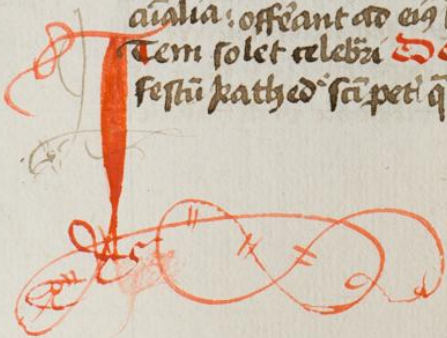 aialia : offeant ad eiꝯ
Item solet celebri De
festū kathedˢ sci peti q̄